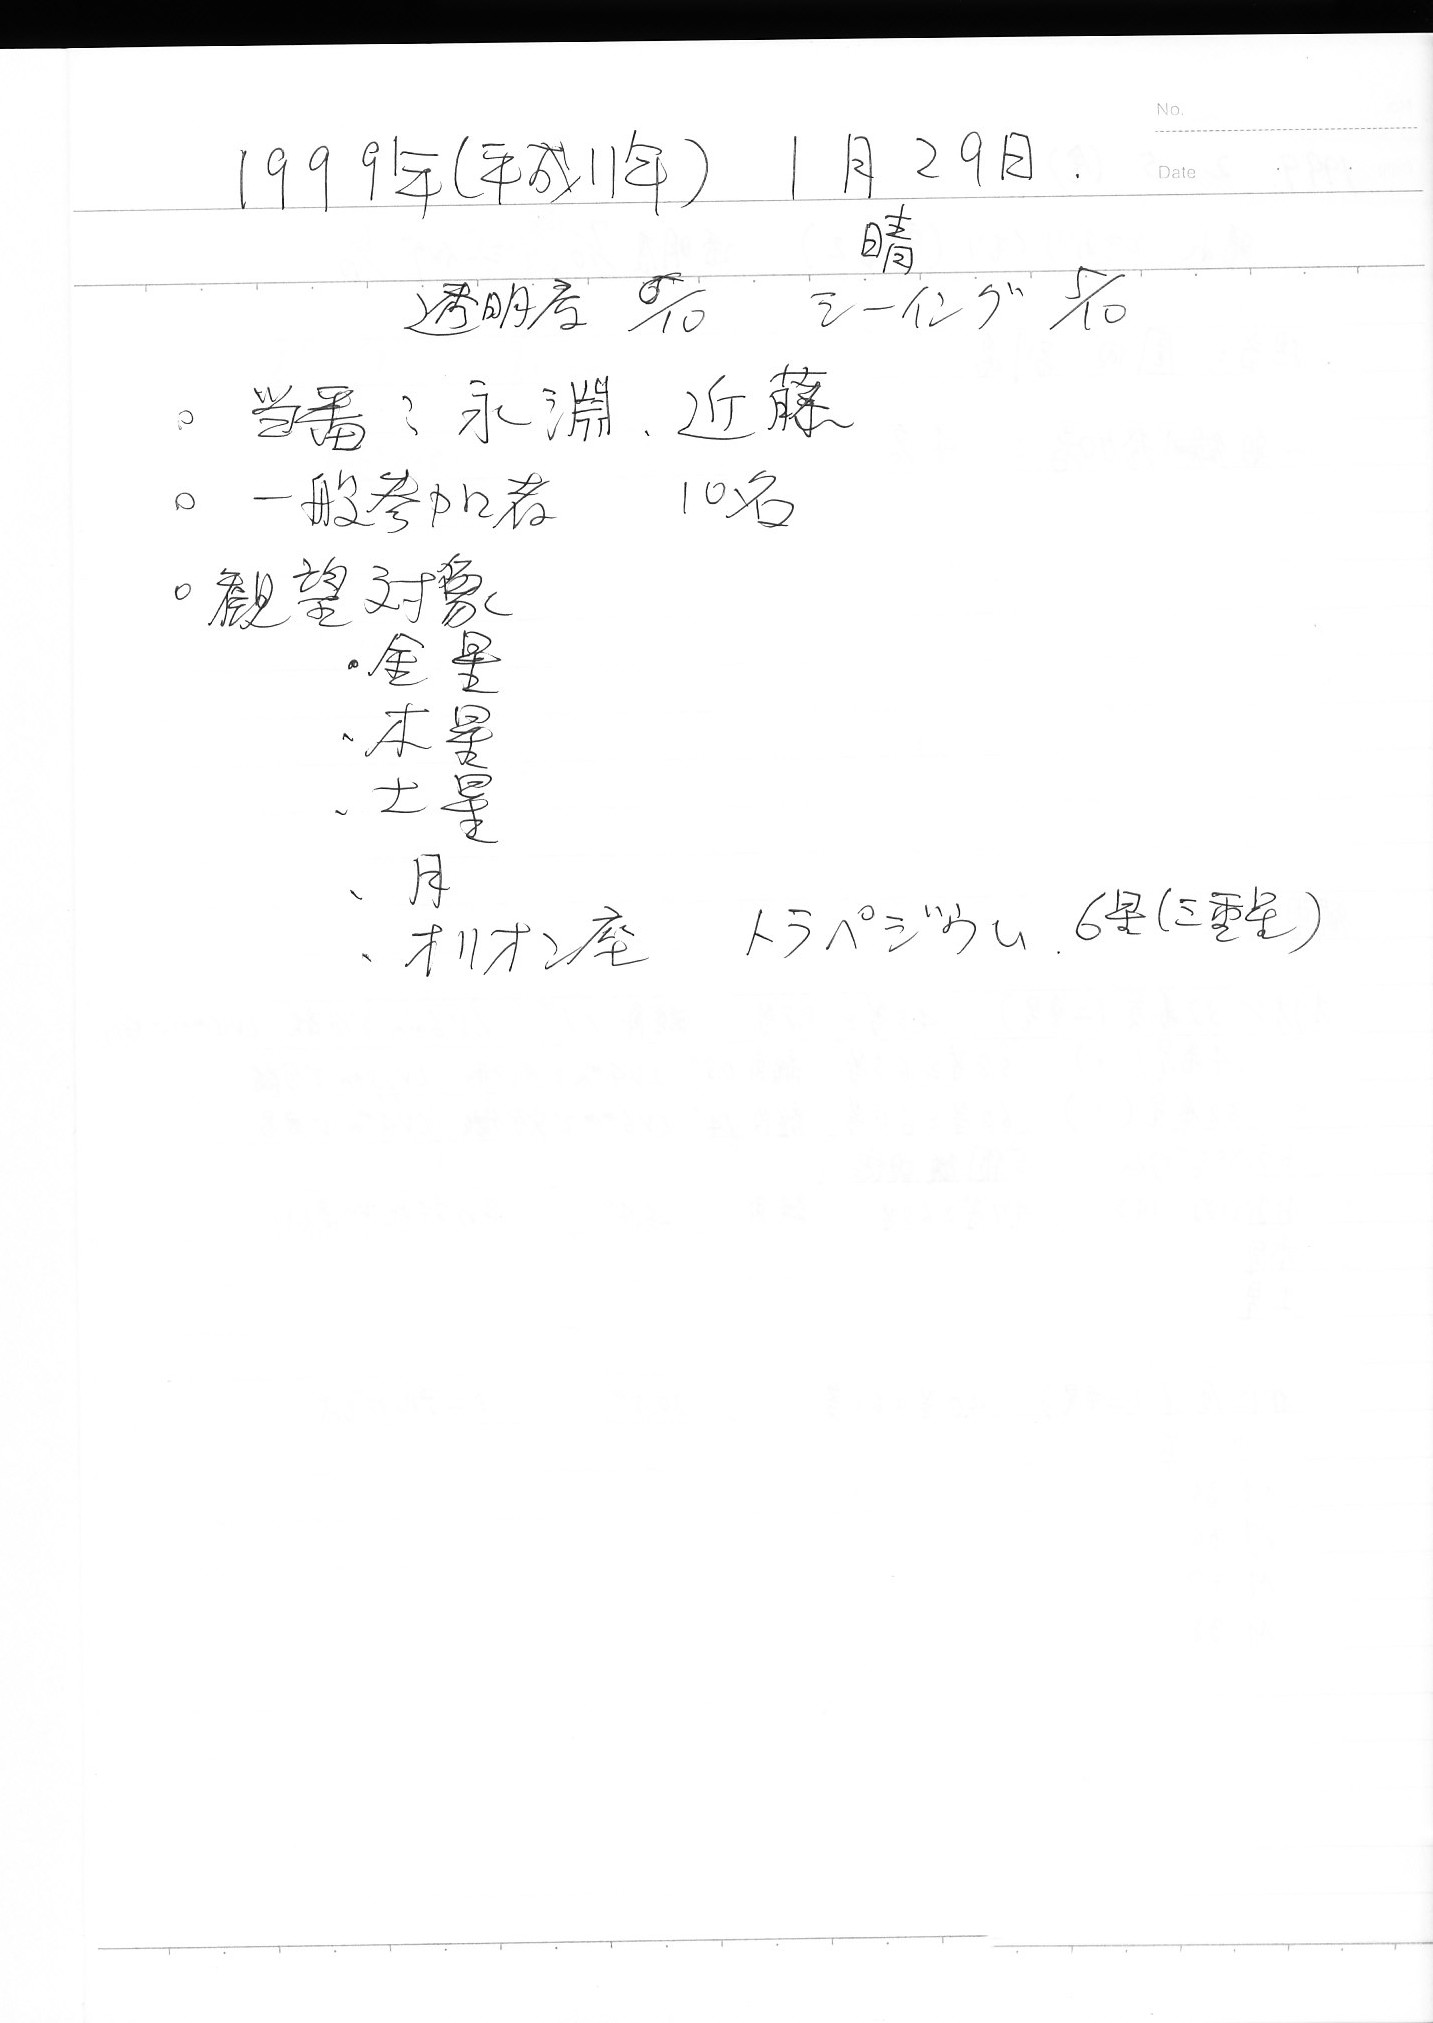 No.
Date
1999年(平成11年) 1月29日.
晴
透明度 5/10 シーイング 5/10
○ 当番:永淵、近藤
○ 一般参加者 10名
○ 観望対象
・金星
・木星
・土星
・月
・オリオン座 トラペジウム. 6星(三重星)